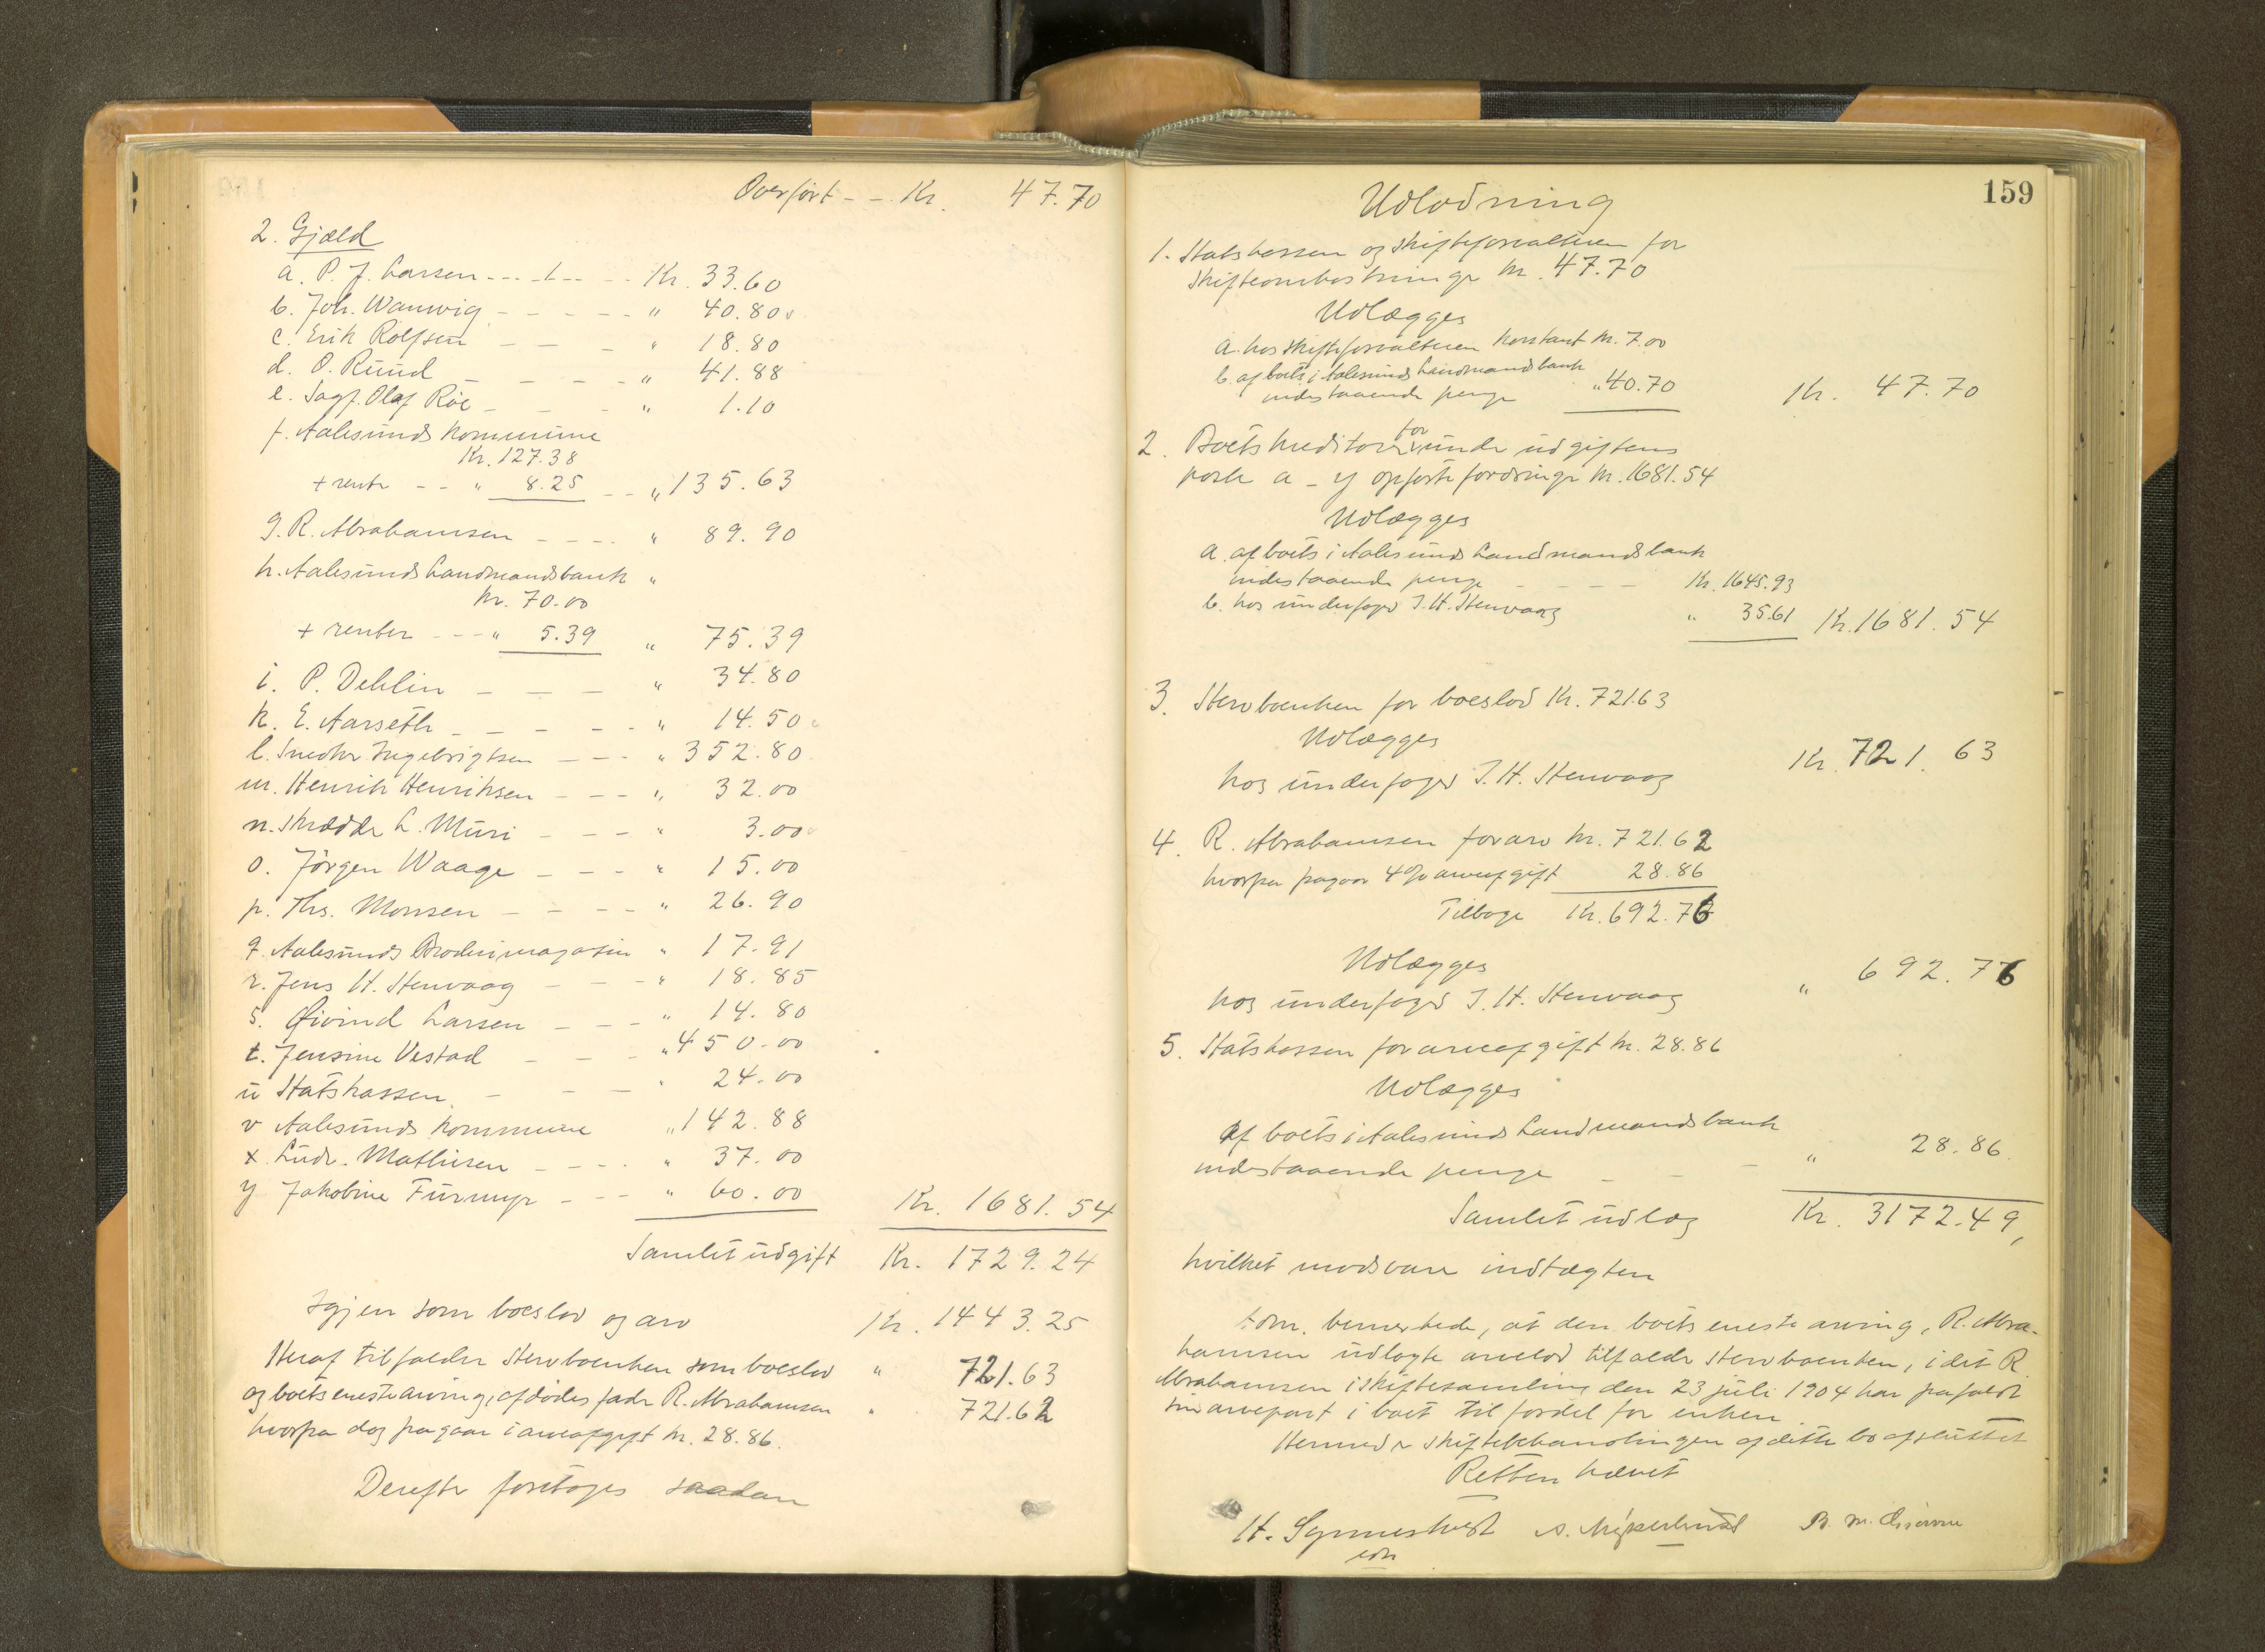 Overført - - Kr. 47.70
2. Gjæld
a. P. J. Larsen - - - - - - Kr. 33.60
b. Joh. Wanvig - - - - - " 40.80
c. Erik Rolfsen - - - " 18.80
d. O. Ruud - - - - " 41.88
e. Sagf. Olaf Röe - - - " 1.10
f. Aalesunds kommune
Kr. 127.38
+ rente - - " 8.25 - - " 135.63
g. R. Abrahamsen - - - - " 89.90
h. Aalesunds Landmandsbank "
Kr. 70.00
+ renter - - - " 5.39 " 75.39
i. P. Dehlin - - - " 34.80
k. E. Aarseth - - - - - " 14.50
l. Snedker Ingebrigtsen - - - " 352.80
m. Henrik Henriksen - - - " 32.00
n. Skrædder L. Muri - - - " 3.00
o. Jörgen Waage - - - " 15.00
p. Ths. Monsen - - - - " 26.90
q. Aalesunds Broderimagasin " 17.91
r. Jens H. Stenvaag - - - " 18.85
s. Øivind Larsen - - - " 14.80
t. Jensine Vestad - - - " 450.00
u Statskassen - - - " 24.00
v Aalesunds kommune " 142.88
x Ludv. Mathisen - - - - " 37.00
y Jakobine Furmyr - - - " 60.00 Kr. 1681.54
Samlet udgift Kr. 1729.24
Igjen som boeslod og arv Kr. 1443.25
Heraf tilfalder Stervboenken som boeslod " 721.63
og boets eneste arving, afdödes fader R. Abrahamsen " 721.62
hvorpaa dog pagaar i arveafgift kr. 28.86.
Derefter foretoges saadan
159
Udlodning
1. Statskassen og skifteforvalteren for
skifteomkostninger kr. 47.70
Udlægges
a. hos skifteforvalteren kontant kr. 7.00
b. af boets i Aalesunds Landmandsbank
indestaaende penge " 40.70 Kr. 47.70
2. Boets kreditorer for under udgiftens
poster a - y opförte fordringer kr. 1681.54
Udlægges
a. af boets i Aalesunds Landmandsbank
indestaaende penge - - - - Kr. 1645.93
b. hos underfoged J. H. Stenvaag " 35.61 Kr. 1681.54
3. Stervboenken for boeslod Kr. 721.63
Udlægges
hos underfoged J. H. Stenvaag Kr. 721.63
4. R. Abrahamsen for arv kr. 721.62
hvorpaa pagaar 4% arveafgift 28.86
Tilbage Kr. 692.76
Udlægges
hos underfoged J. H. Stenvaag " 692.76
5. Statskassen for arveafgift kr. 28.86
Udlægges
Af boets i Aalesunds Landmandsbank
indestaaende penge - - - " 28.86
Samlet udlæg Kr. 3172.49,
hvilket modsvarer indtægten
bemerkede, at den boets eneste arving, R. Abra-
hamsen udlagte arvelod tilfalder stervboenken, idet R.
Abrahamsen i skiftesamling den 23 juli 1904 har frafaldt
sin arvepart i boet til fordel for enken
Hermed er skiftebehandlingen af dette bo afsluttet
Retten hævet
H. Synnestvedt
edv